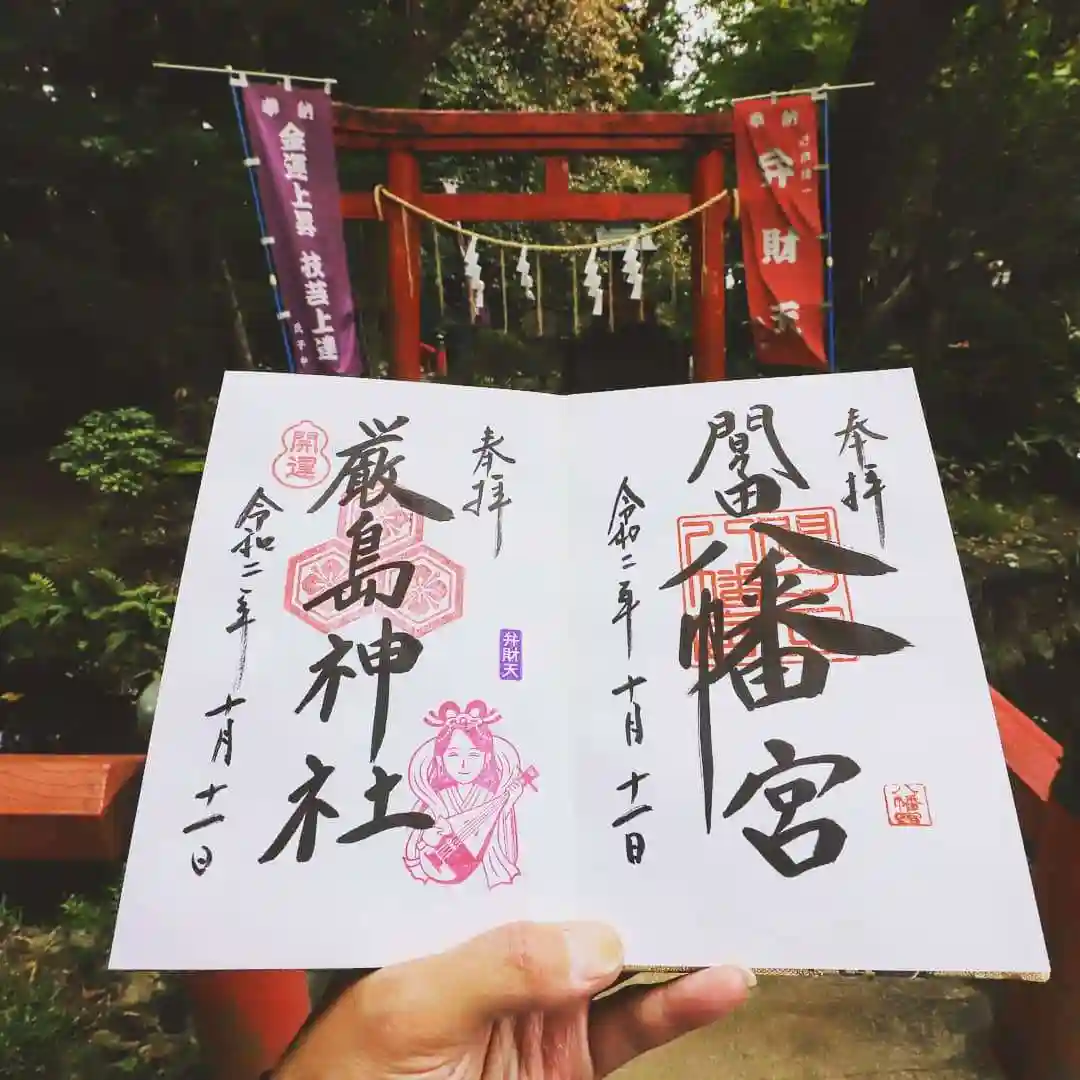 奉納
金運上昇 技芸上達
奉納
弁財天
奉拝
間々田八幡宮
令和二年 十月 十一日
八幡宮
奉拝
厳島神社
開運
令和二年 十月 十一日
弁財天